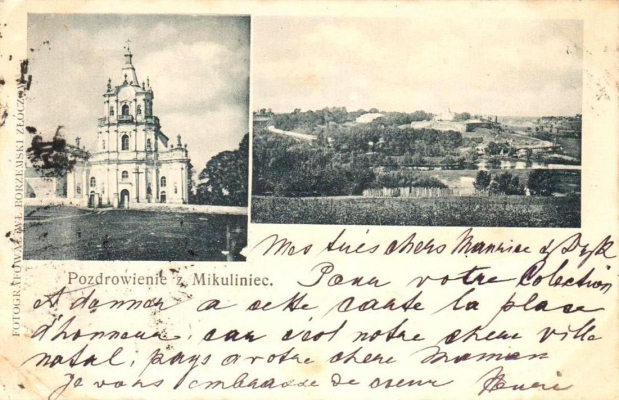 FOTOGRAFOWAŁ EWE. BORZEMSKI ZŁOCZÓW
Pozdrowienie z Mikuliniec.
Mes très chers Maurice
Pour votre Colection
et donner a cette carte la place
d'honneur, car c'est notre chere ville
natal, pays a votre chere Maman
Je vous embrasse de coeur